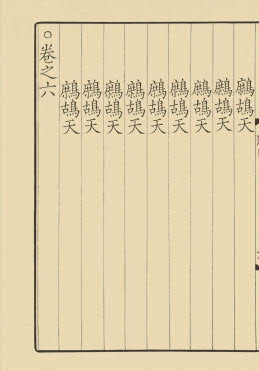 鷓鴣天
鷓鴣天
鷓鴣天
鷓鴣天
鷓鴣天
鷓鴣天
鷓鴣天
鷓鴣天
鷓鴣天
○卷之六